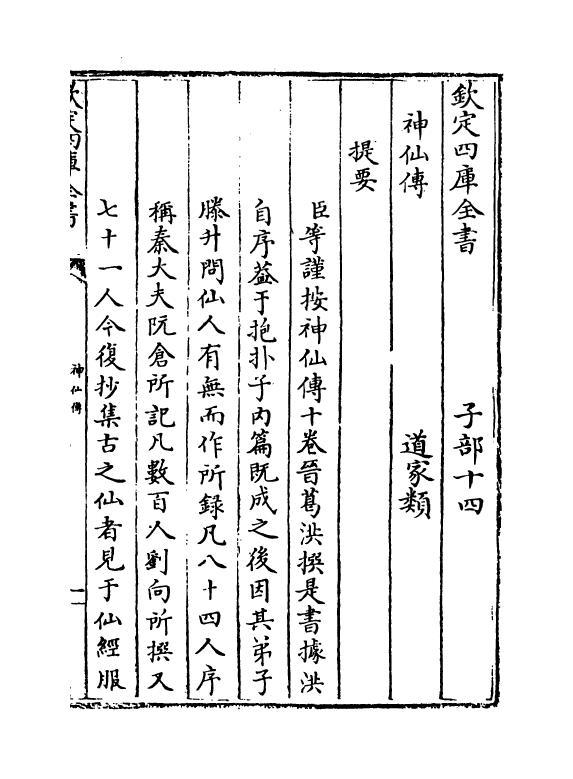 欽定四庫全書　子部十四
神仙傳　道家類
提要
臣等謹按神仙傳十卷晉葛洪撰是書據洪
自序葢于抱扑子内篇既成之後因其弟子
滕升問仙人有無而作所錄凡八十四人序
稱秦大夫阮倉所記凡數百人劉向所撰又
七十一人今復抄集古之仙者見于仙經服
欽定四庫全書
神仙傳
一